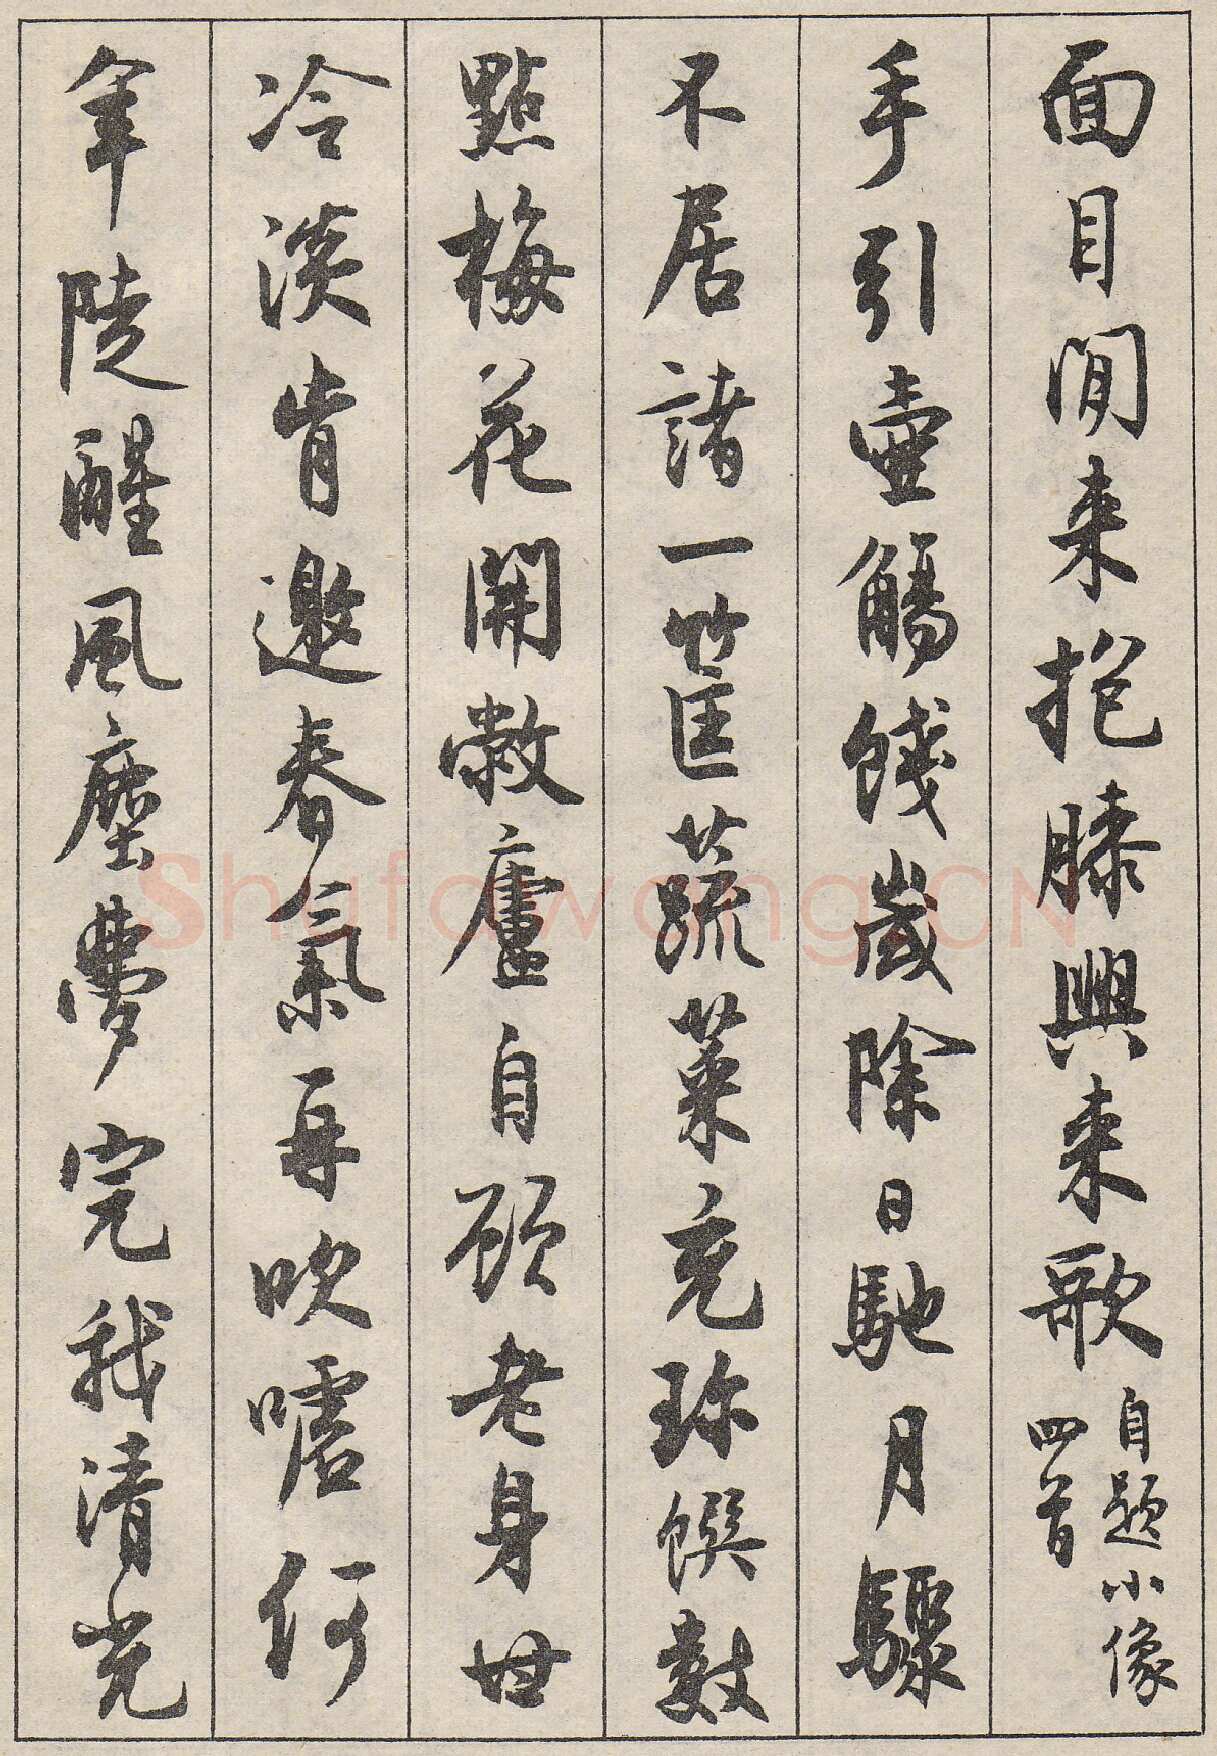 面目閒来抱膝興来歌
自題小像
四首
手引壷觴餞歲除日馳月驟
不居諸一筐蔬菜充珍饌數
點梅花開敝廬自顧老身世
冷淡肯邀春氣再吹噓何
年陡醒風塵夢完我清光
Shufawang.CN